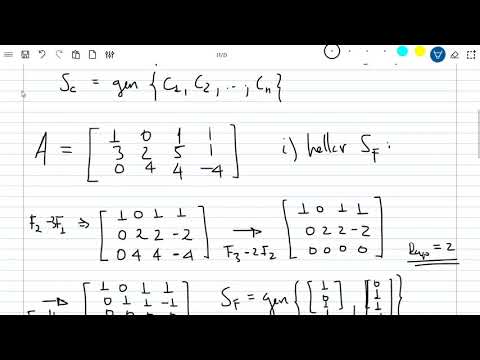 11/21
S_c = gen { C_1, C_2, ..., C_n }
A = [ 1 0 1 1
3 2 5 1
0 4 4 -4 ] i) hallar S_F :
F_2 - 3F_1 ⇒ [ 1 0 1 1
0 2 2 -2
0 4 4 -4 ] → F_3 - 2F_2 [ 1 0 1 1
0 2 2 -2
0 0 0 0 ] Rango = 2
→ [ 1 0 1 1
0 1 1 -1 S_F = gen { [ 1 0 1 ] , [ 0 1 1 ] }